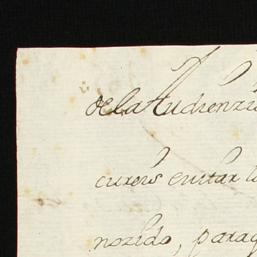 de la Audienzia
cureis evitar l
nozido, paraq